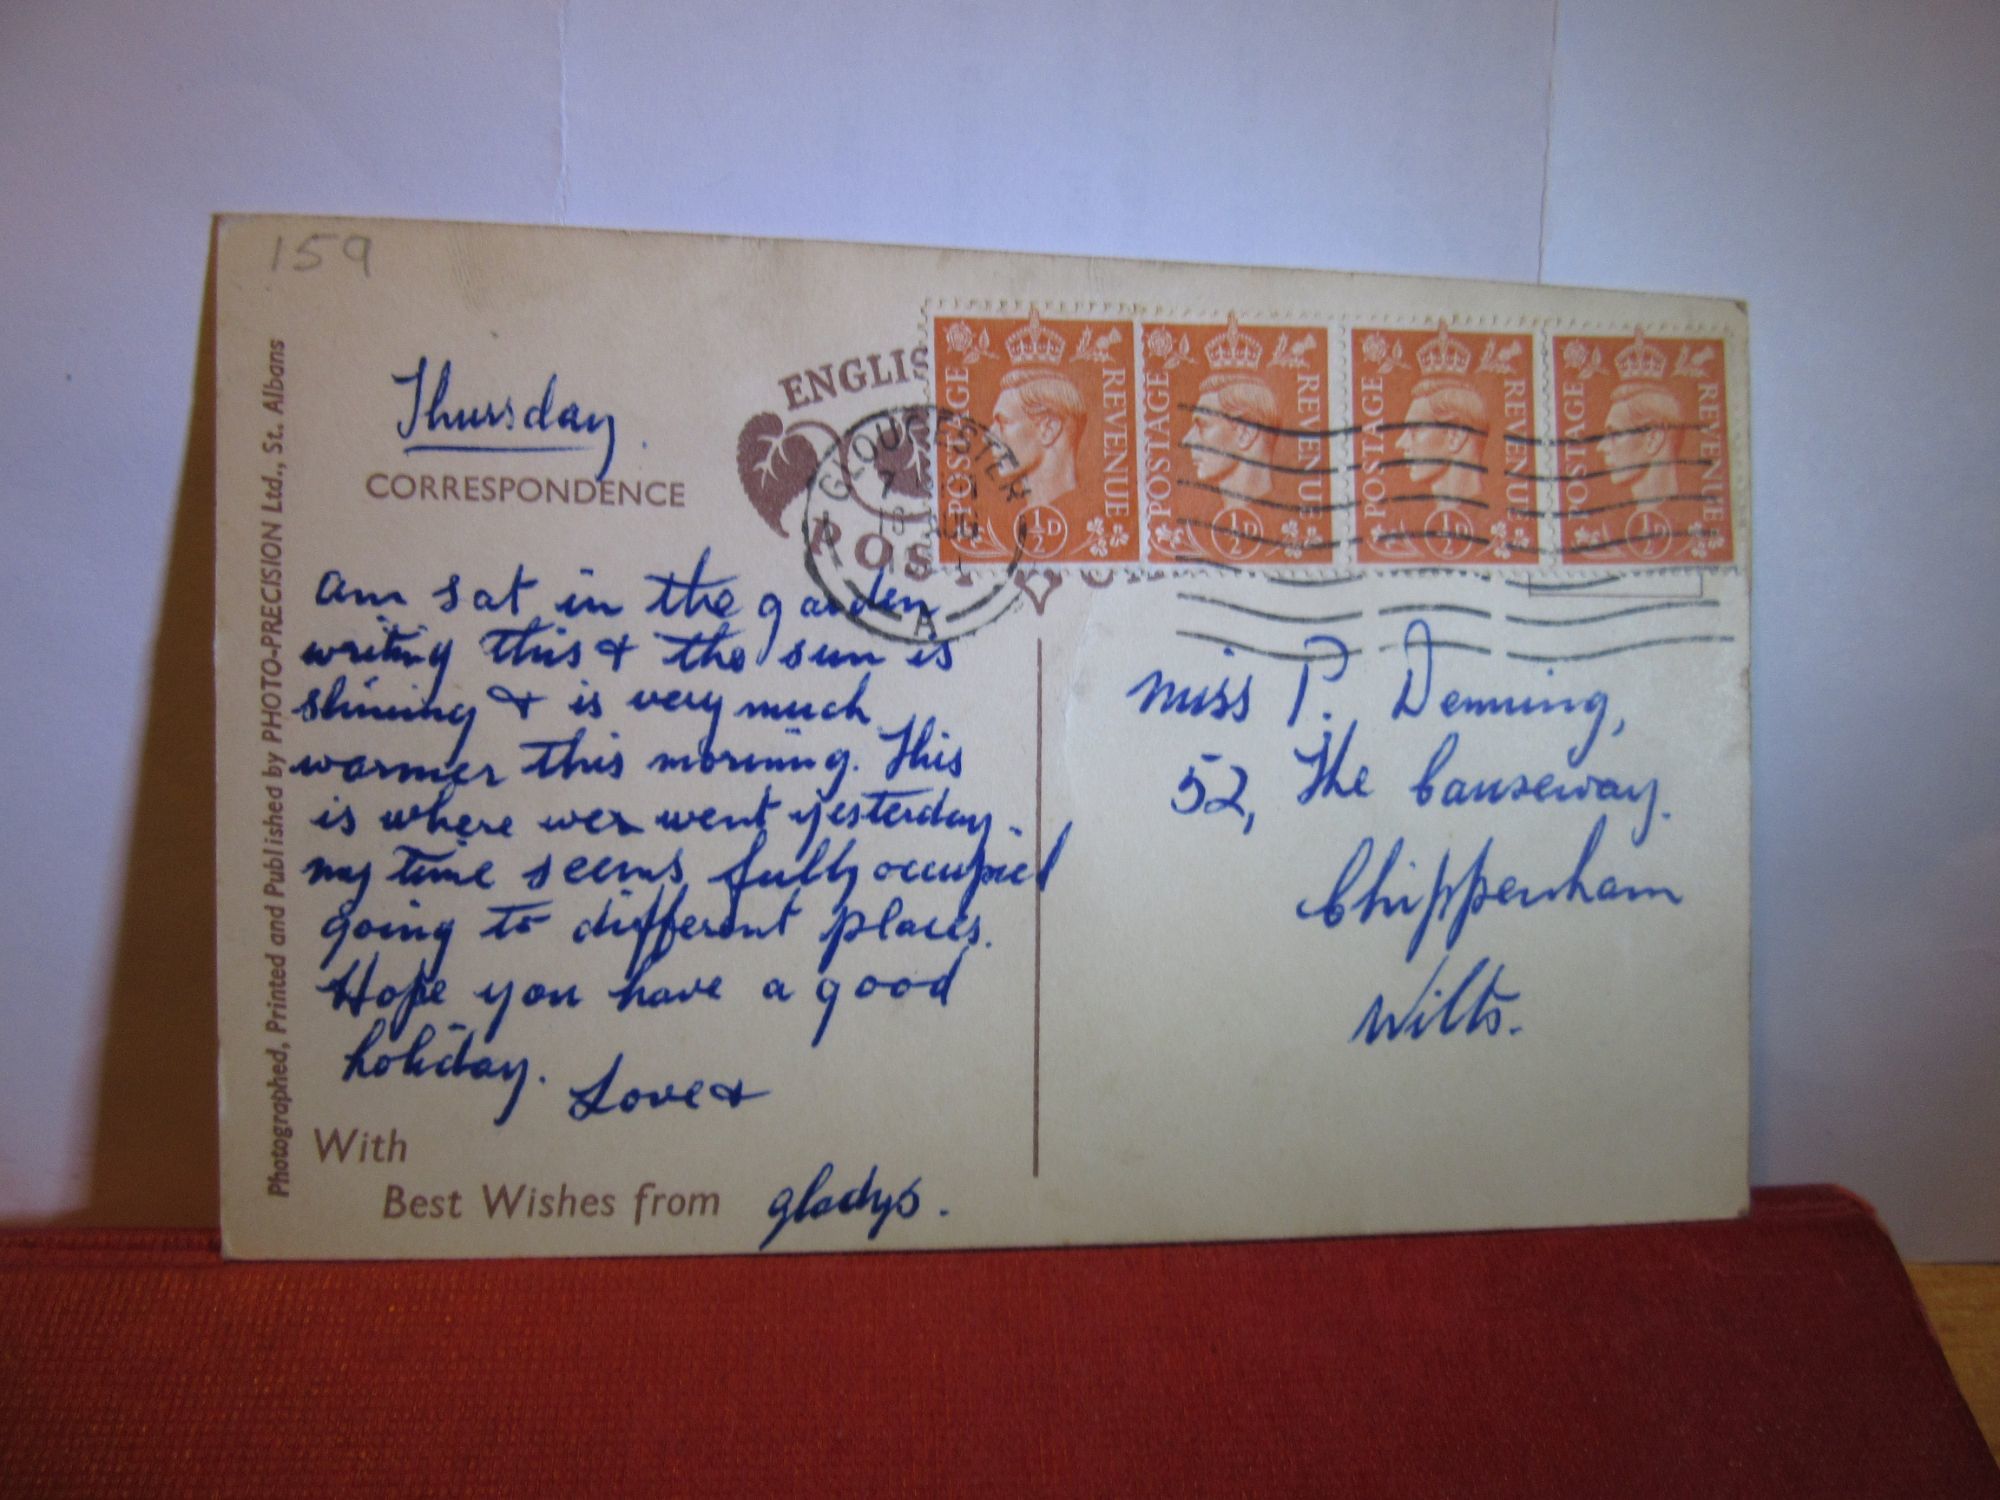 159
Photographed, Printed and Published by PHOTO-PRECISION Ltd., St. Albans
Thursday.
CORRESPONDENCE
am sat in the garden
writing this & the sun is
shining & is very much
warmer this morning. This
is where we went yesterday.
my time seems fully occupied
going to different places.
Hope you have a good
holiday.
Love &
With
Best Wishes from gladys.
ENGLIS
POST
GLOUCESTER
A
POSTAGE REVENUE ½D
POSTAGE REVENUE ½D
POSTAGE REVENUE ½D
POSTAGE REVENUE ½D
Miss P. Denning,
52, The Causeway.
Chippenham
Wilts.